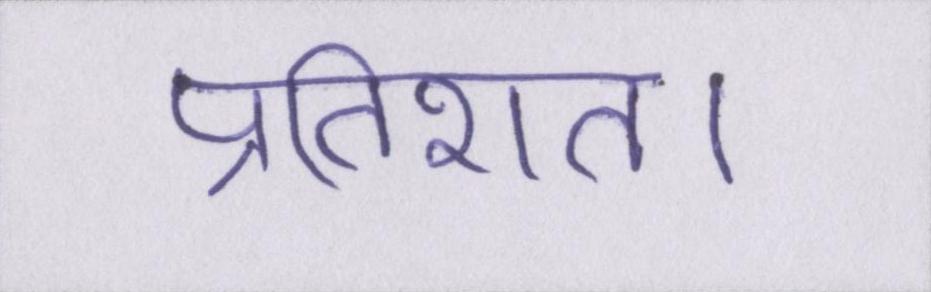 प्रतिशत।